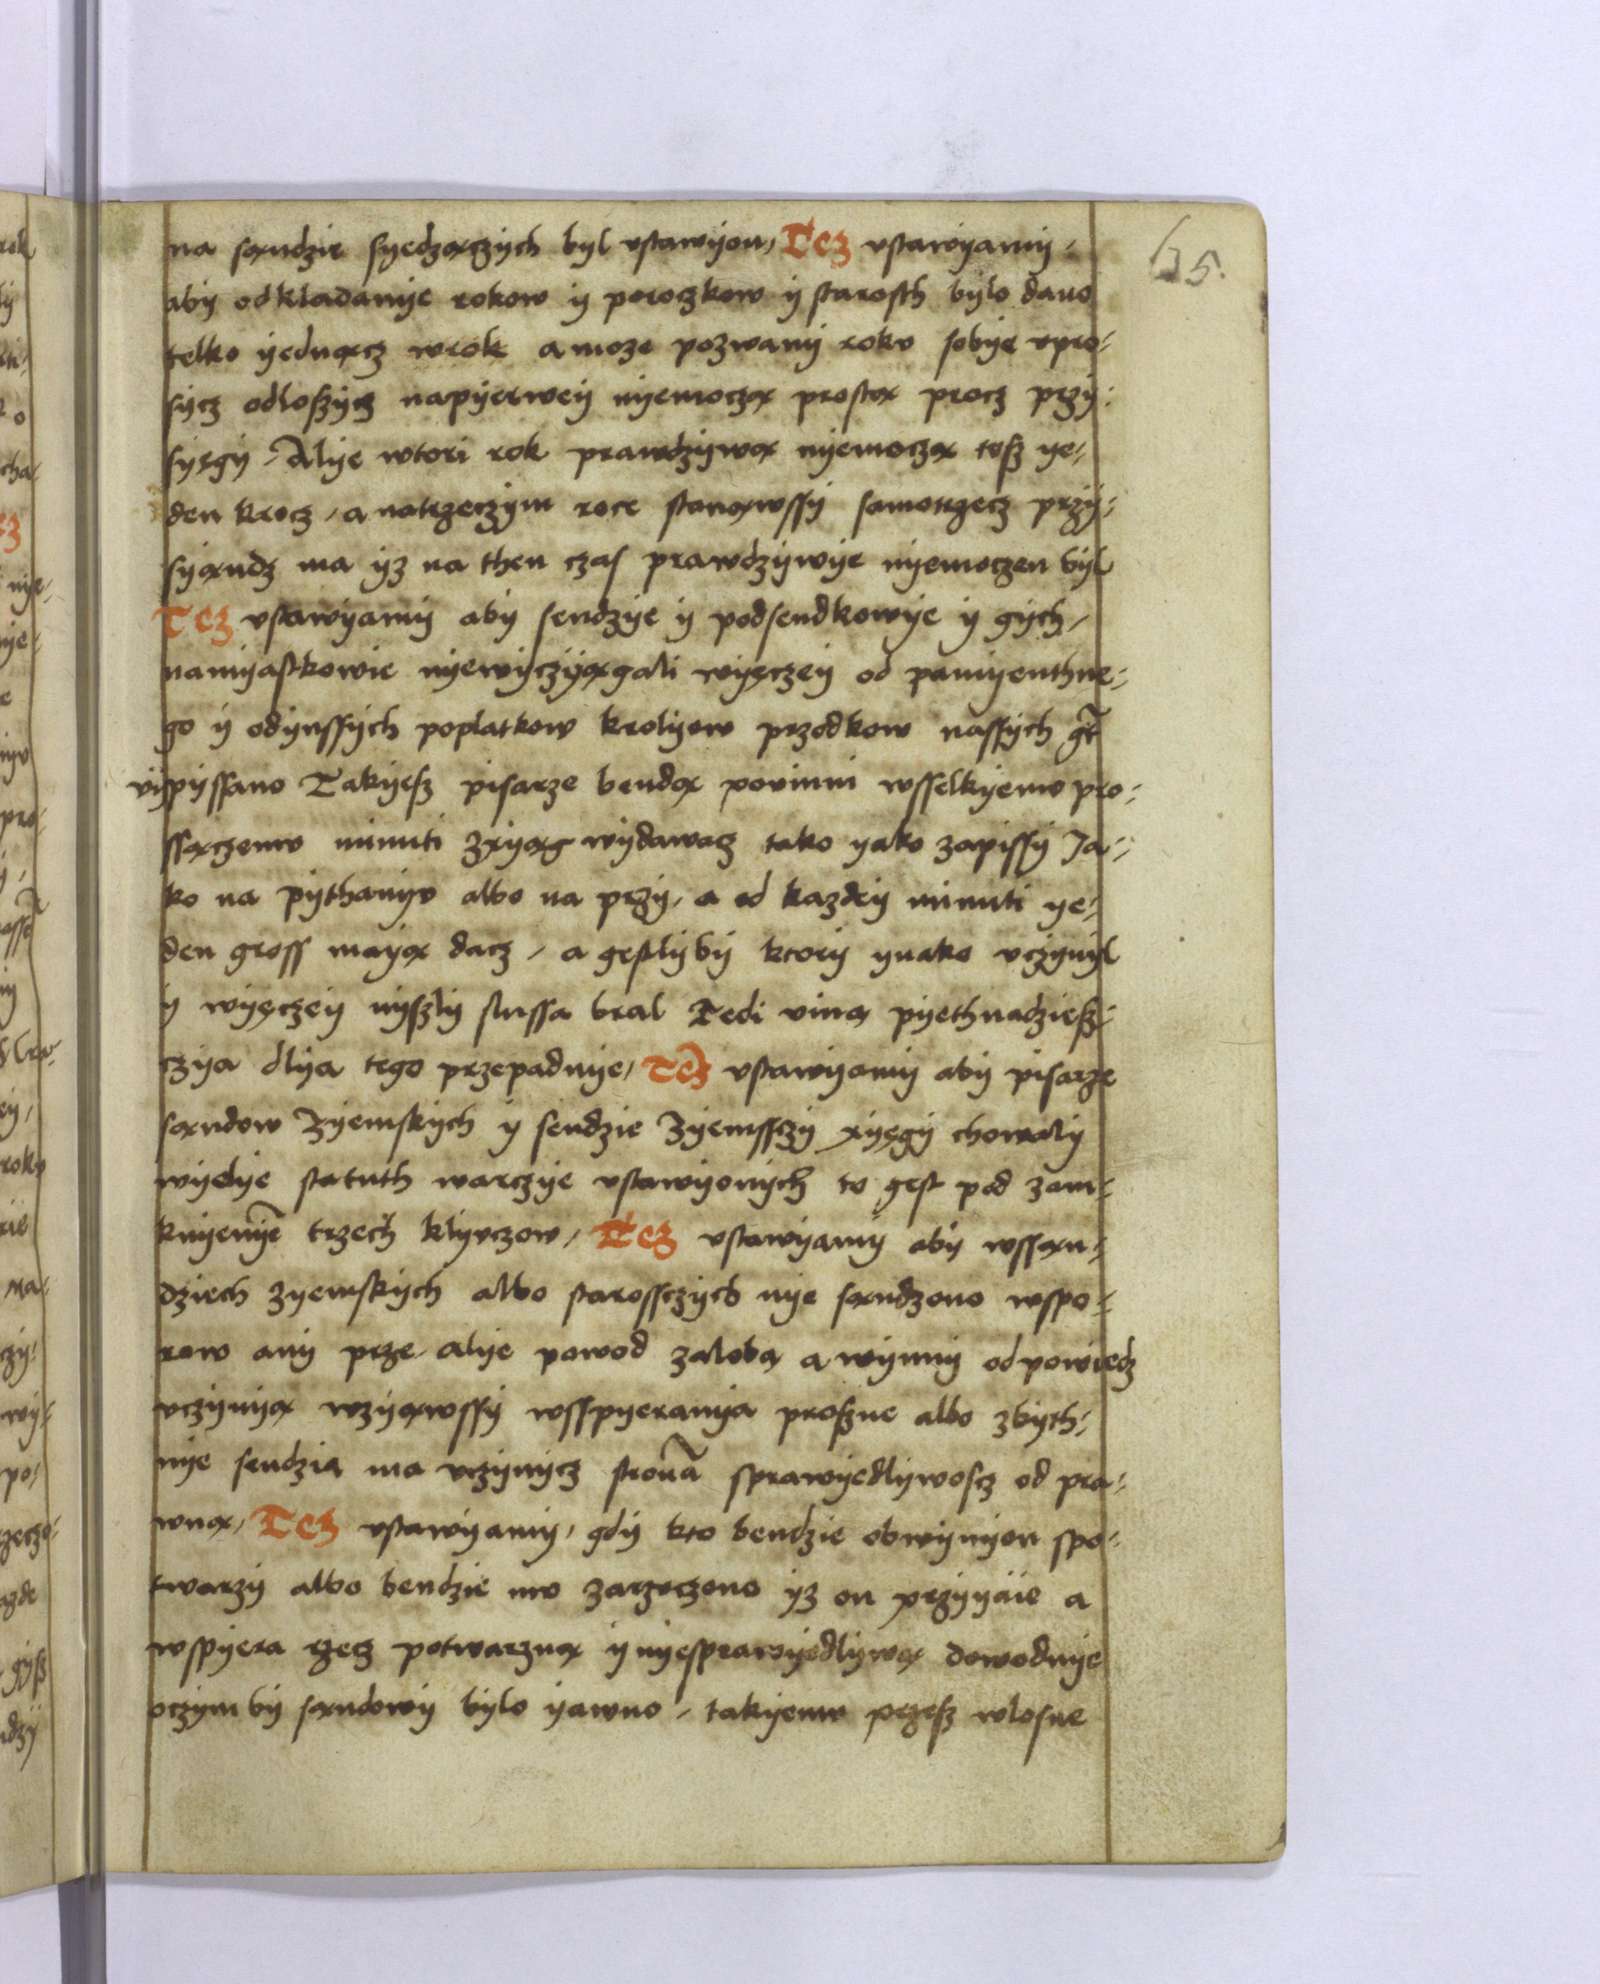 65.
na sąndzie syedzączych byl vstawyon, Tez vstawyamy,
aby odkladanye rokow y poroczkow y starosth bylo dano
telko yednącz wrok a moze pozwany roku sobye vpro-
sycz odloszycz napyerwey nyemoczą prostą procz przy-
syęgy, Alye wtori rok prawdzywą nyemoczą tesz ye-
den krocz, a natrzeczym roce stanąwssy samotrzecz przy-
syąndz ma yz na then czas prawdzywye nyemoczen byl
Tez vstawyamy aby sendzye y podsendkowye y gych,
namyastkowie nyewyczyągali wyęczey od pamyenthne-
go y odynssych poplatkow krolyow przodkow nassych gē
vypyssano Takyesz pisarze bendą povinni wsselkyemu pro-
ssączemu minuti zxyąg wydawacz tako yako zapissy Ja-
ko na pythanyu albo na przy, a od kazdey minuti ye-
den gross mayą dacz, a gestlyby ktory ynako vczynyl
y wyęczey nyszly slussa bral Tedi viną pyethnadziesz-
czya dlya tego przepadnye, Tez vstawyamy aby pisarze
sąndow Zyemskych y sendzie Zyemssczy xyęgy chowaly
wyelye statuth warczye vstawyonych to gest pod zam-
knyenyē trzech klyuczow, Tez vstawyamy aby wssąn-
dziech zyemskych albo starossczych nye sąndzono wspo-
row any prze, alye powod zalobą a wynny odpowiedz
vczynyą wzyąwssy wsspyeranya proszne albo zbyth-
nye sendzia ma vczynycz stronā sprawyedlywoscz od pra-
wną, Tez vstawyamy, gdy kto bendzie obwynyon spo-
twarzy albo bendzie mu zarzeczono yz on przyyaie a
wspyera rzecz potwarzną y nyesprawyedlywą dowodnye
oczym by sąndowy bylo yawno, takyemu przesz wlosne